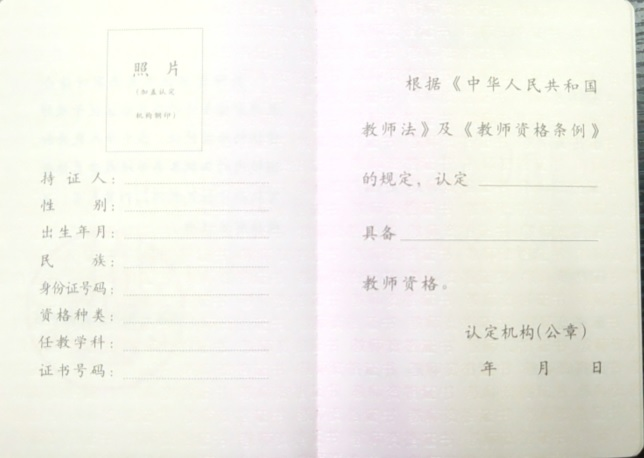 照 片
(加盖认定
机构钢印)
持 证 人:
性 别:
出生年月:
民 族:
身份证号码:
资格种类:
任教学科:
证书号码:
根据《中华人民共和国
教师法》及《教师资格条例》
的规定，认定
具备
教师资格。
认定机构(公章)
年 月 日